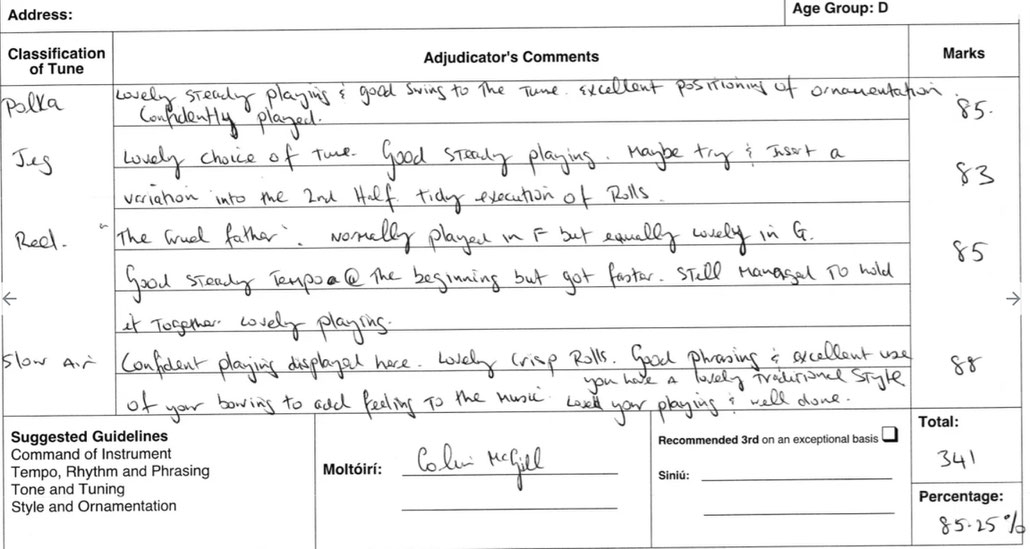 Address:
Age Group: D
Classification of Tune
Adjudicator's Comments
Marks
Polka
Lovely steady playing & good swing to the tune. Excellent positioning of ornamentation.
Confidently played.
85.
Jig
Lovely choice of tune. Good steady playing. Maybe try & insert a
variation into the 2nd Half. tidy execution of Rolls.
83
Reel.
"The Cruel father". Normally played in F but equally lovely in G.
Good steady Tempo @ the beginning but got faster. Still managed to hold
it together. Lovely playing.
85
Slow Air
Confident playing displayed here. Lovely crisp Rolls. Good phrasing & excellent use
of your bowing to add feeling to the music. you have a lovely Traditional style
Loved your playing & well done.
88
Suggested Guidelines
Command of Instrument
Tempo, Rhythm and Phrasing
Tone and Tuning
Style and Ornamentation
Moltóirí: Colin McGill
Recommended 3rd on an exceptional basis
Siniú:
Total:
341
Percentage:
85.25%